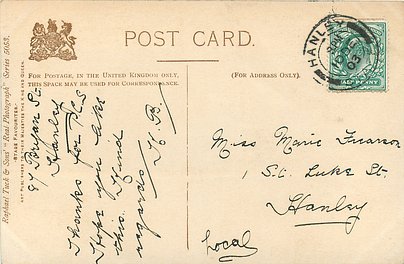 POST CARD.
FOR POSTAGE, IN THE UNITED KINGDOM ONLY,
THIS SPACE MAY BE USED FOR CORRESPONDENCE.
(FOR ADDRESS ONLY.)
Raphael Tuck & Sons' "Real Photograph" Series 5053.
"STAGE FAVOURITES."
ART PUBLISHERS TO THEIR MAJESTIES THE KING AND QUEEN.
HANLEY
HALFPENNY
87 Bryan St.
Hanley
Thanks for P.C.s
Hope you like
this. Kind
regards H. B.
Miss Marie
1 St. Lukes St.
Hanley
Local